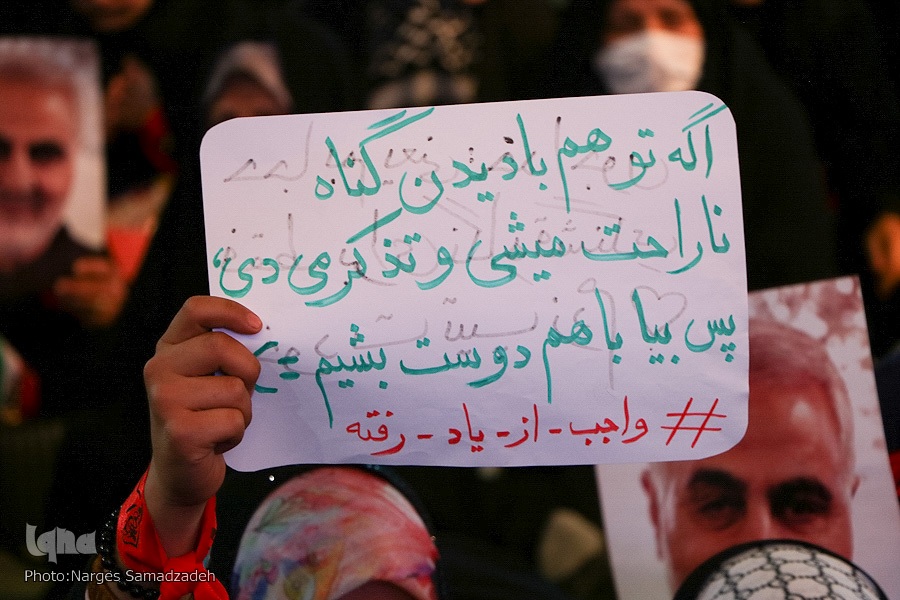 اگه تو هم با دیدن گناه
ناراحت میشی و تذکر می دی،
پس بیا با هم دوست بشیم
#واجب-از-یاد-رفته
Iqna
Photo:Narges Samadzadeh